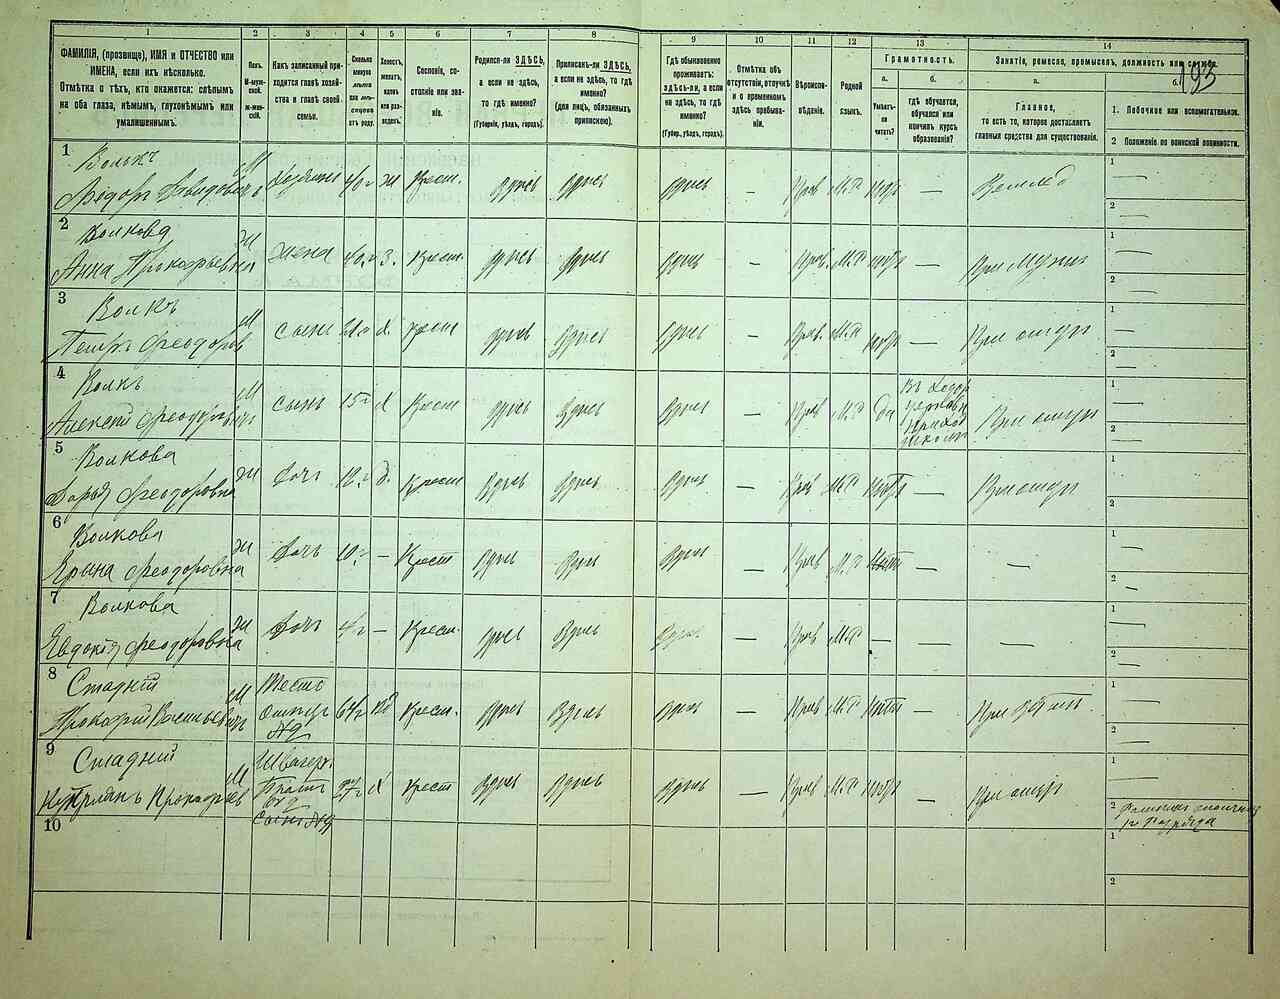 193
1 2 3 4 5 6 7 8 9 10 11 12 13 14
ФАМИЛІЯ, (прозвище), ИМЯ и ОТЧЕСТВО или
ИМЕНА, если ихъ нѣсколько.
Отмѣтка о тѣхъ, кто окажется: слѣпымъ
на оба глаза, нѣмымъ, глухонѣмымъ или
умалишеннымъ.
Полъ.
М-муж-
ской.
Ж-жен-
скій.
Какъ записанный при-
ходится главѣ хозяй-
ства и главѣ своей
семьи.
Сколько
минуло
лѣтъ
или мѣ-
сяцевъ
отъ роду.
Холостъ,
женатъ,
вдовъ
или раз-
веденъ.
Сословіе, со-
стояніе или зва-
ніе.
Родился-ли ЗДѢСЬ,
а если не здѣсь,
то гдѣ именно?
(Губернія, уѣздъ, городъ).
Приписанъ-ли ЗДѢСЬ,
а если не здѣсь, то гдѣ
именно?
(для лицъ, обязанныхъ
припискою).
Гдѣ обыкновенно
проживаетъ:
здѣсь-ли, а если
не здѣсь, то гдѣ
именно?
(Губерн., уѣздъ, городъ).
Отмѣтка объ
отсутствіи, отлучкѣ
и о временномъ
здѣсь пребыва-
ніи.
Вѣроиспо-
вѣданіе.
Родной
языкъ.
Грамотность.
а.
Умѣетъ-
ли
читать?
б.
гдѣ обучается,
обучался или
кончилъ курсъ
образованія?
Занятіе, ремесло, промыселъ, должность или служба.
а.
Главное,
то есть то, которое доставляетъ
главныя средства для существованія.
б.
1. Побочное или вспомогательное.
2 Положеніе по воинской повинности.
1 Волкъ
Ѳедоръ Давидовичъ М Хозяинъ 40 г ж Крест. здѣсь здѣсь здѣсь — Прав М.Р нѣтъ — Земле
2 Волкова
Анна Прокофьевна ж жена 40 г з. Крест. здѣсь здѣсь здѣсь — Прав. М.Р нѣтъ — При мужѣ
3 Волкъ
Петръ Феодоров М сынъ х. Крест здѣсь здѣсь здѣсь — Прав. М.Р нѣтъ — При отцѣ
4 Волкъ
Алексѣй Феодоров М сынъ 15 г х Крест здѣсь здѣсь здѣсь — Прав М.Р да Въ
церковн
приход
школѣ При отцѣ
5 Волкова
Дарья Феодоровна ж дочь 12 г д. Крест здѣсь здѣсь здѣсь — Прав М.Р нѣтъ — При отцѣ
6 Волкова
Ярына Феодоровна ж дочь 10 г — Крест здѣсь здѣсь здѣсь — Прав М.Р нѣтъ — —
7 Волкова
Евдокія Феодоровна ж дочь 4 г — Крест. здѣсь здѣсь здѣсь — Прав М.Р — — —
8 Стадній
Прокофій Васильевичъ М Тесть
64 г вд Крест. здѣсь здѣсь здѣсь — Прав М.Р нѣтъ — При зятѣ
9 Стадній
Прокофьев М Швагеръ
27 г х Крест здѣсь здѣсь здѣсь — Прав М.Р нѣтъ — При отцѣ
2 Ратникъ ополченія
разряда
10